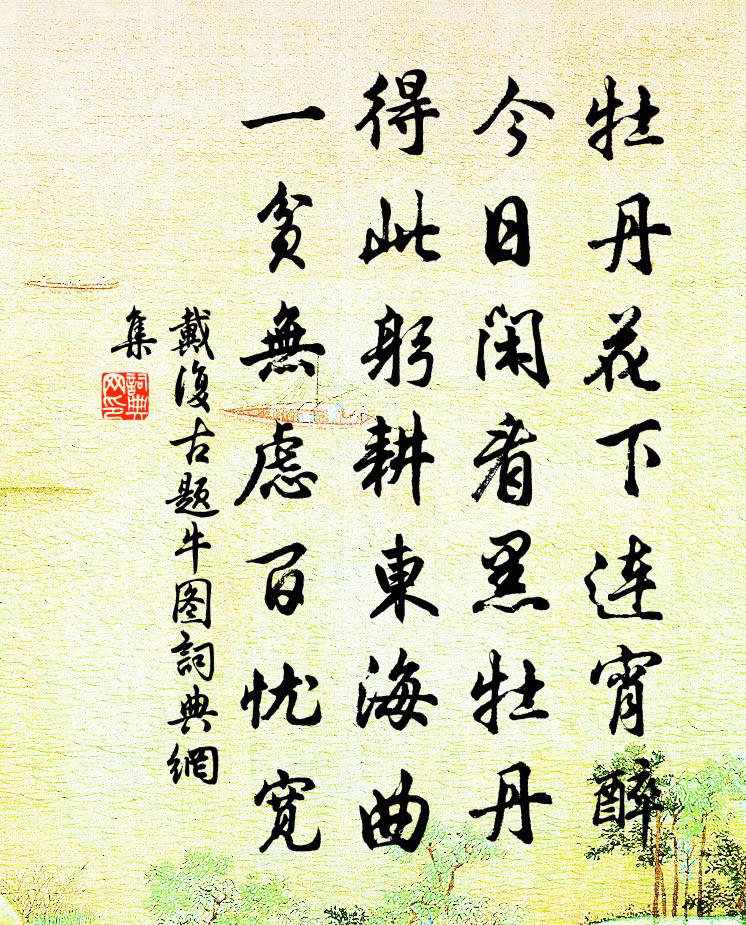 牡丹花下连宵醉
今日闲看黑牡丹
得此躬耕東海曲
一贫無虑百忧宽
戴復古题牛图詞典網
集
詞典网印